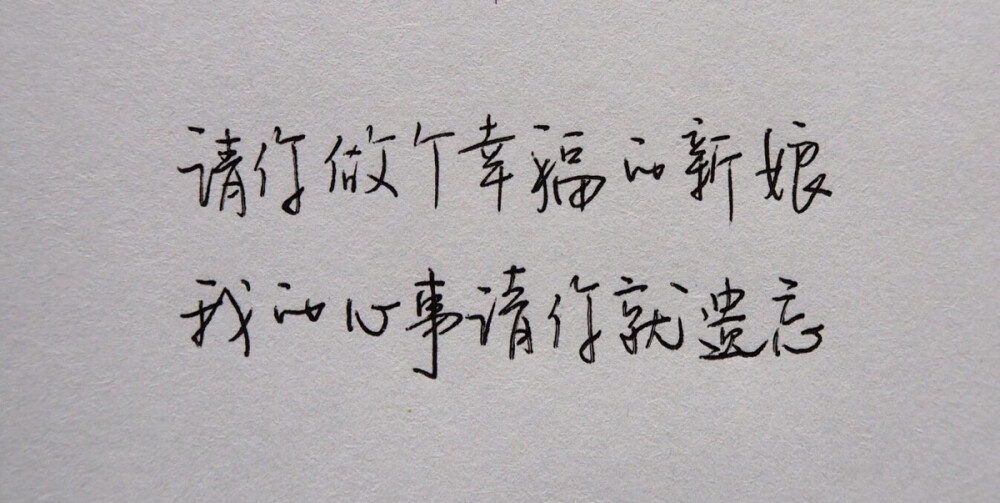 请你做个幸福的新娘
我的心事请你就遗忘